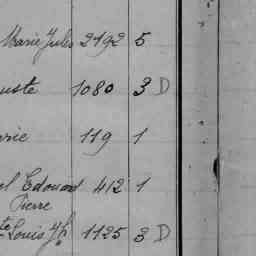 Marie Jules 2192 5
uste 1080 3 D
rie 119 1
el Edouard 412 1
Pierre
te Louis Jh 1125 3 D